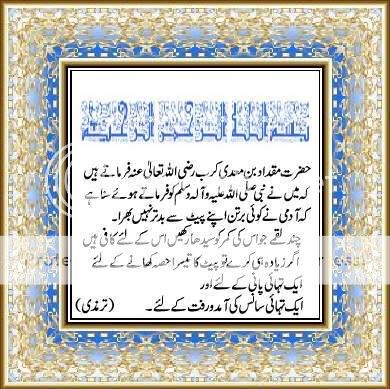 بسم الله الرحمن الرحيم
حضرت مقداد بن معدی کرب رضی اللہ تعالیٰ عنہ فرماتے ہیں
کہ میں نے نبی صلی اللہ علیہ و آلہ وسلم کو فرماتے ہوئے سنا ہے
کہ آدمی نے کوئی برتن اپنے پیٹ سے بدتر نہیں بھرا۔
چند لقمے جو اس کی کمر کو سیدھا رکھیں اس کے لئے کافی ہیں
اگر زیادہ ہی کرے تو پیٹ کا تیسرا حصہ کھانے کے لئے
ایک تہائی پانی کے لئے اور
ایک تہائی سانس کی آمد و رفت کے لئے۔ (ترمذی)